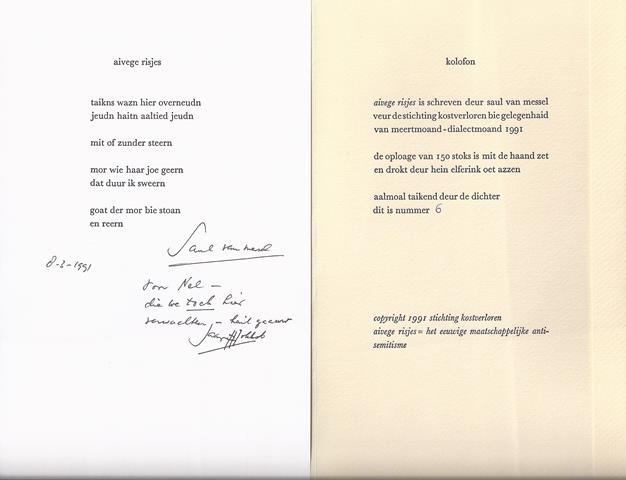 aivege risjes
taikns wazn hier overneudn
jeudn haitn aaltied jeudn
mit of zunder steern
mor wie haar joe geern
dat duur ik sweern
goat der mor bie stoan
en reern
Saul van Messel
8-3-1991
voor Nel —
die we toch hier
verwachten, —
kolofon
aivege risjes is schreven deur saul van messel
veur de stichting kostverloren bie gelegenhaid
van meertmoand-dialectmoand 1991
de oploage van 150 stoks is mit de haand zet
en drokt deur hein elferink oet azzen
aalmoal taikend deur de dichter
dit is nummer 6
copyright 1991 stichting kostverloren
aivege risjes = het eeuwige maatschappelijke anti-
semitisme